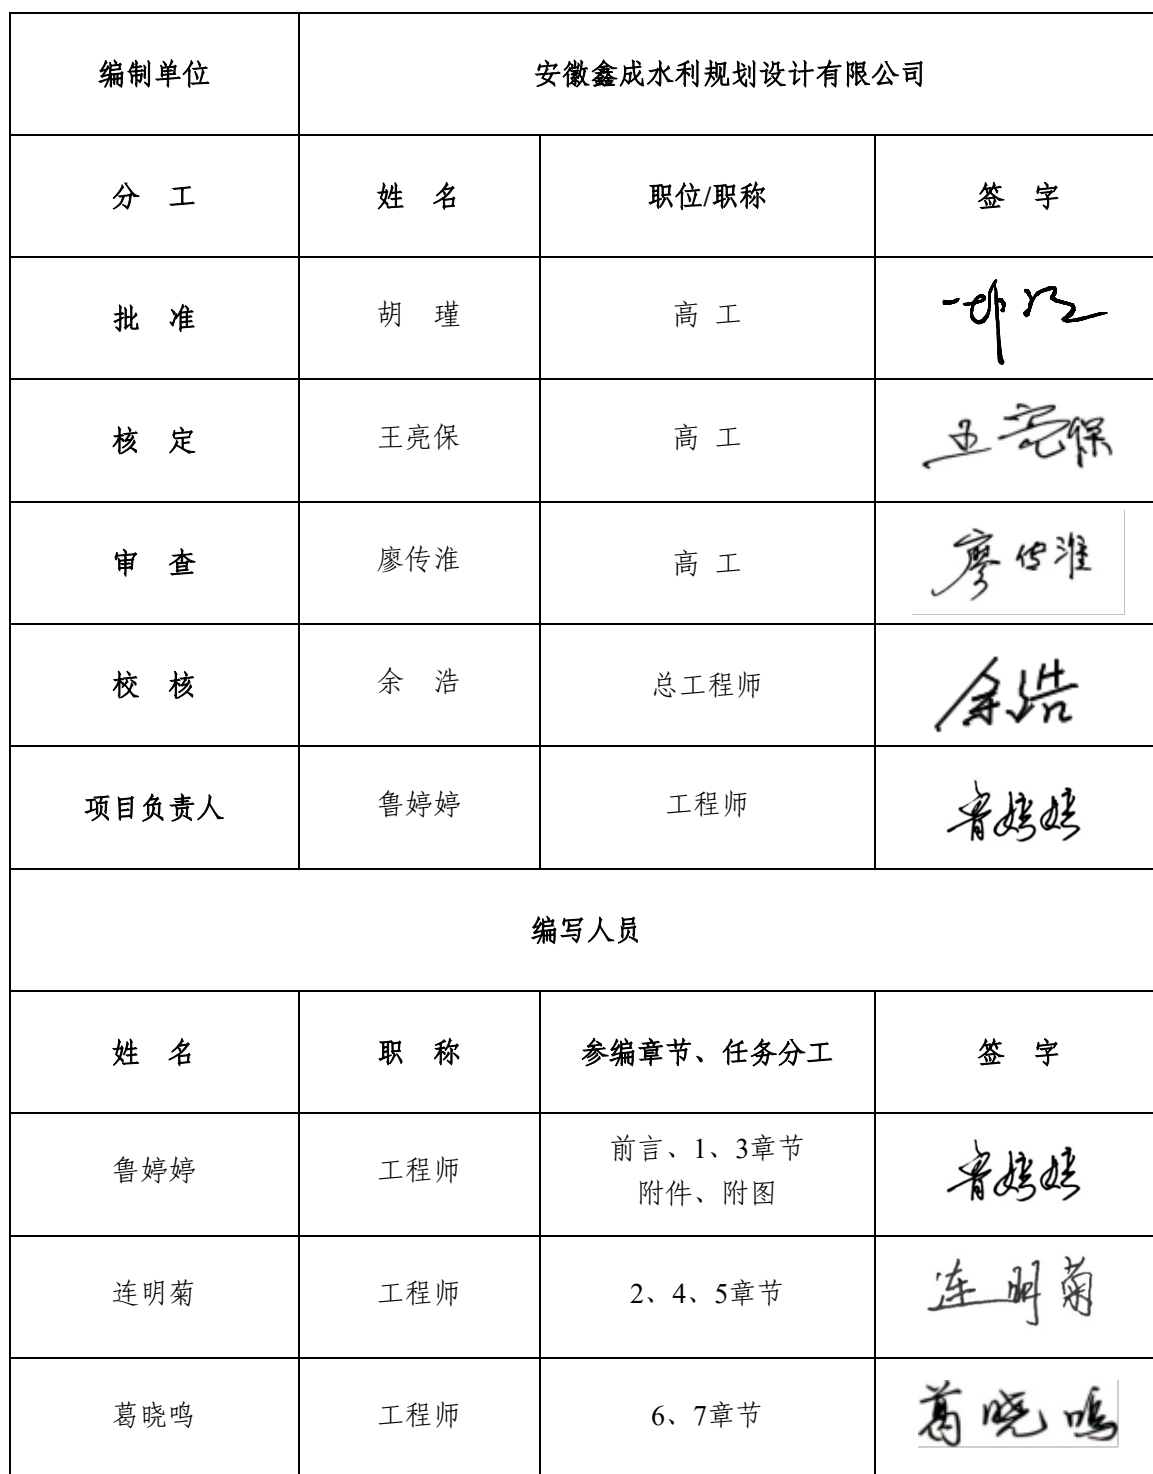 编制单位 安徽鑫成水利规划设计有限公司
分 工 姓 名 职位/职称 签 字
批 准 胡 瑾 高 工
核 定 王亮保 高 工 王亮保
审 查 廖传淮 高 工 廖传淮
校 核 余 浩 总工程师 余浩
项目负责人 鲁婷婷 工程师 鲁婷婷
编写人员
姓 名 职 称 参编章节、任务分工 签 字
鲁婷婷 工程师 前言、1、3章节 鲁婷婷
附件、附图
连明菊 工程师 2、4、5章节 连明菊
葛晓鸣 工程师 6、7章节 葛晓鸣